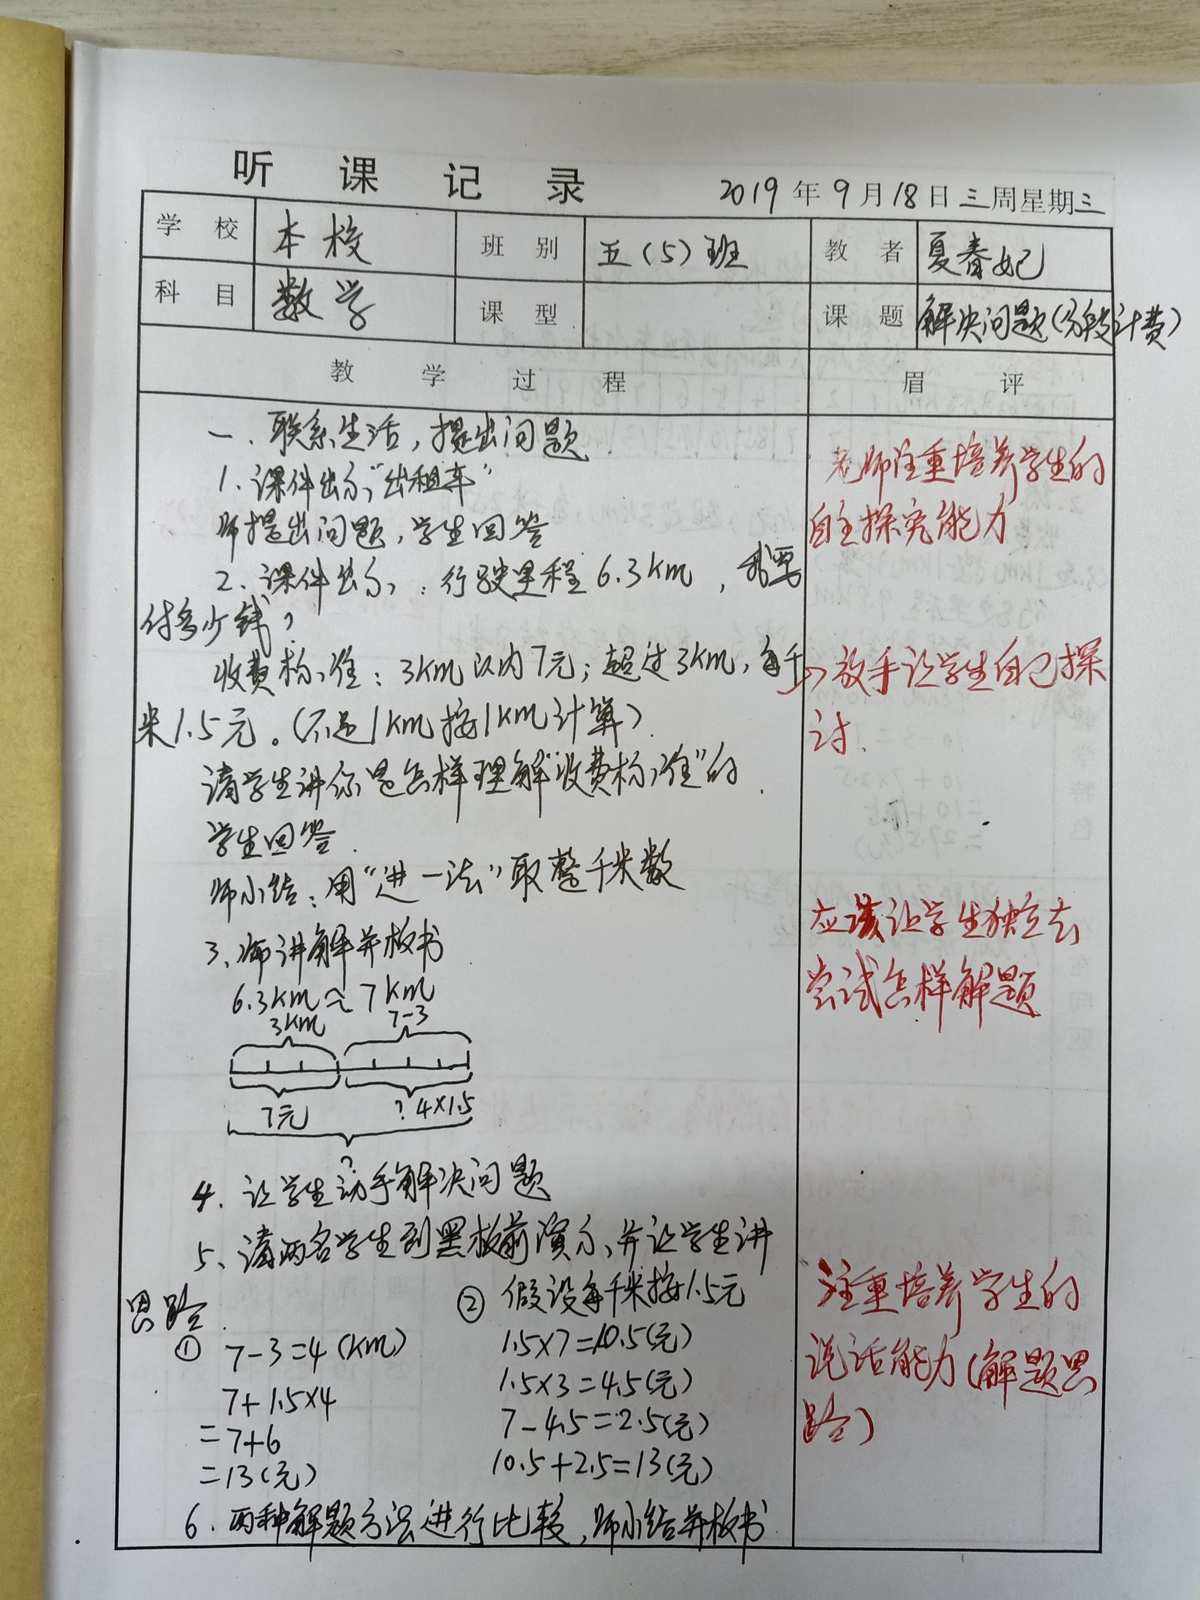 听课记录
2019年9月18日三周星期三
学校 本校 班别 五(5)班 教者 夏春妃
科目 数学 课型 课题 解决问题(分段计费)
教学过程 眉评
一、联系生活,提出问题
1.课件出示“出租车”
师提出问题,学生回答
2.课件出示:行驶里程6.3km,我要
付多少钱?
收费标准:3km以内7元;超过3km,每千
米1.5元。(不足1km按1km计算)
请学生讲你是怎样理解“收费标准”的.
学生回答.
师小结:用“进一法”取整千米数
3、师讲解并板书
6.3km≈7km
3km 7-3
7元 ?4×1.5
?
4.让学生动手解决问题
5、请两名学生到黑板前演示,并让学生讲
思路.
① 7-3=4(km)
7+1.5×4
=7+6
=13(元)
② 假设每千米按1.5元
1.5×7=10.5(元)
1.5×3=4.5(元)
7-4.5=2.5(元)
10.5+2.5=13(元)
6.两种解题方法进行比较,师小结并板书
老师注重培养学生的
自主探究能力
→放手让学生自己探
讨.
应该让学生独立去
尝试怎样解题
注重培养学生的
说话能力(解题思
路)